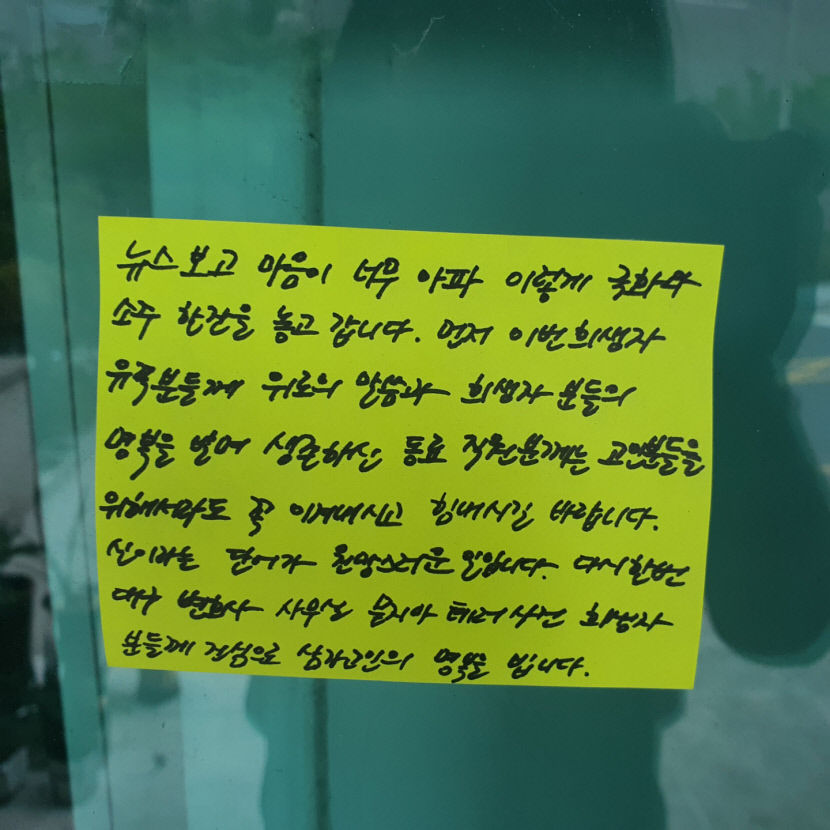 뉴스보고 마음이 너무 아파 이렇게 국화와
소주 한잔을 놓고 갑니다. 먼저 이번 희생자
유족분들께 위로의 말씀과 희생자 분들의
명복을 빌며 생존하신 동료 직원분께는 고인분들을
위해서라도 꼭 이겨내시고 힘내시길 바랍니다.
신이라는 단어가 원망스러운 일입니다. 다시한번
대구 변호사 사무실 묻지마 테러사건 희생자
분들께 진심으로 삼가고인의 명복을 빕니다.